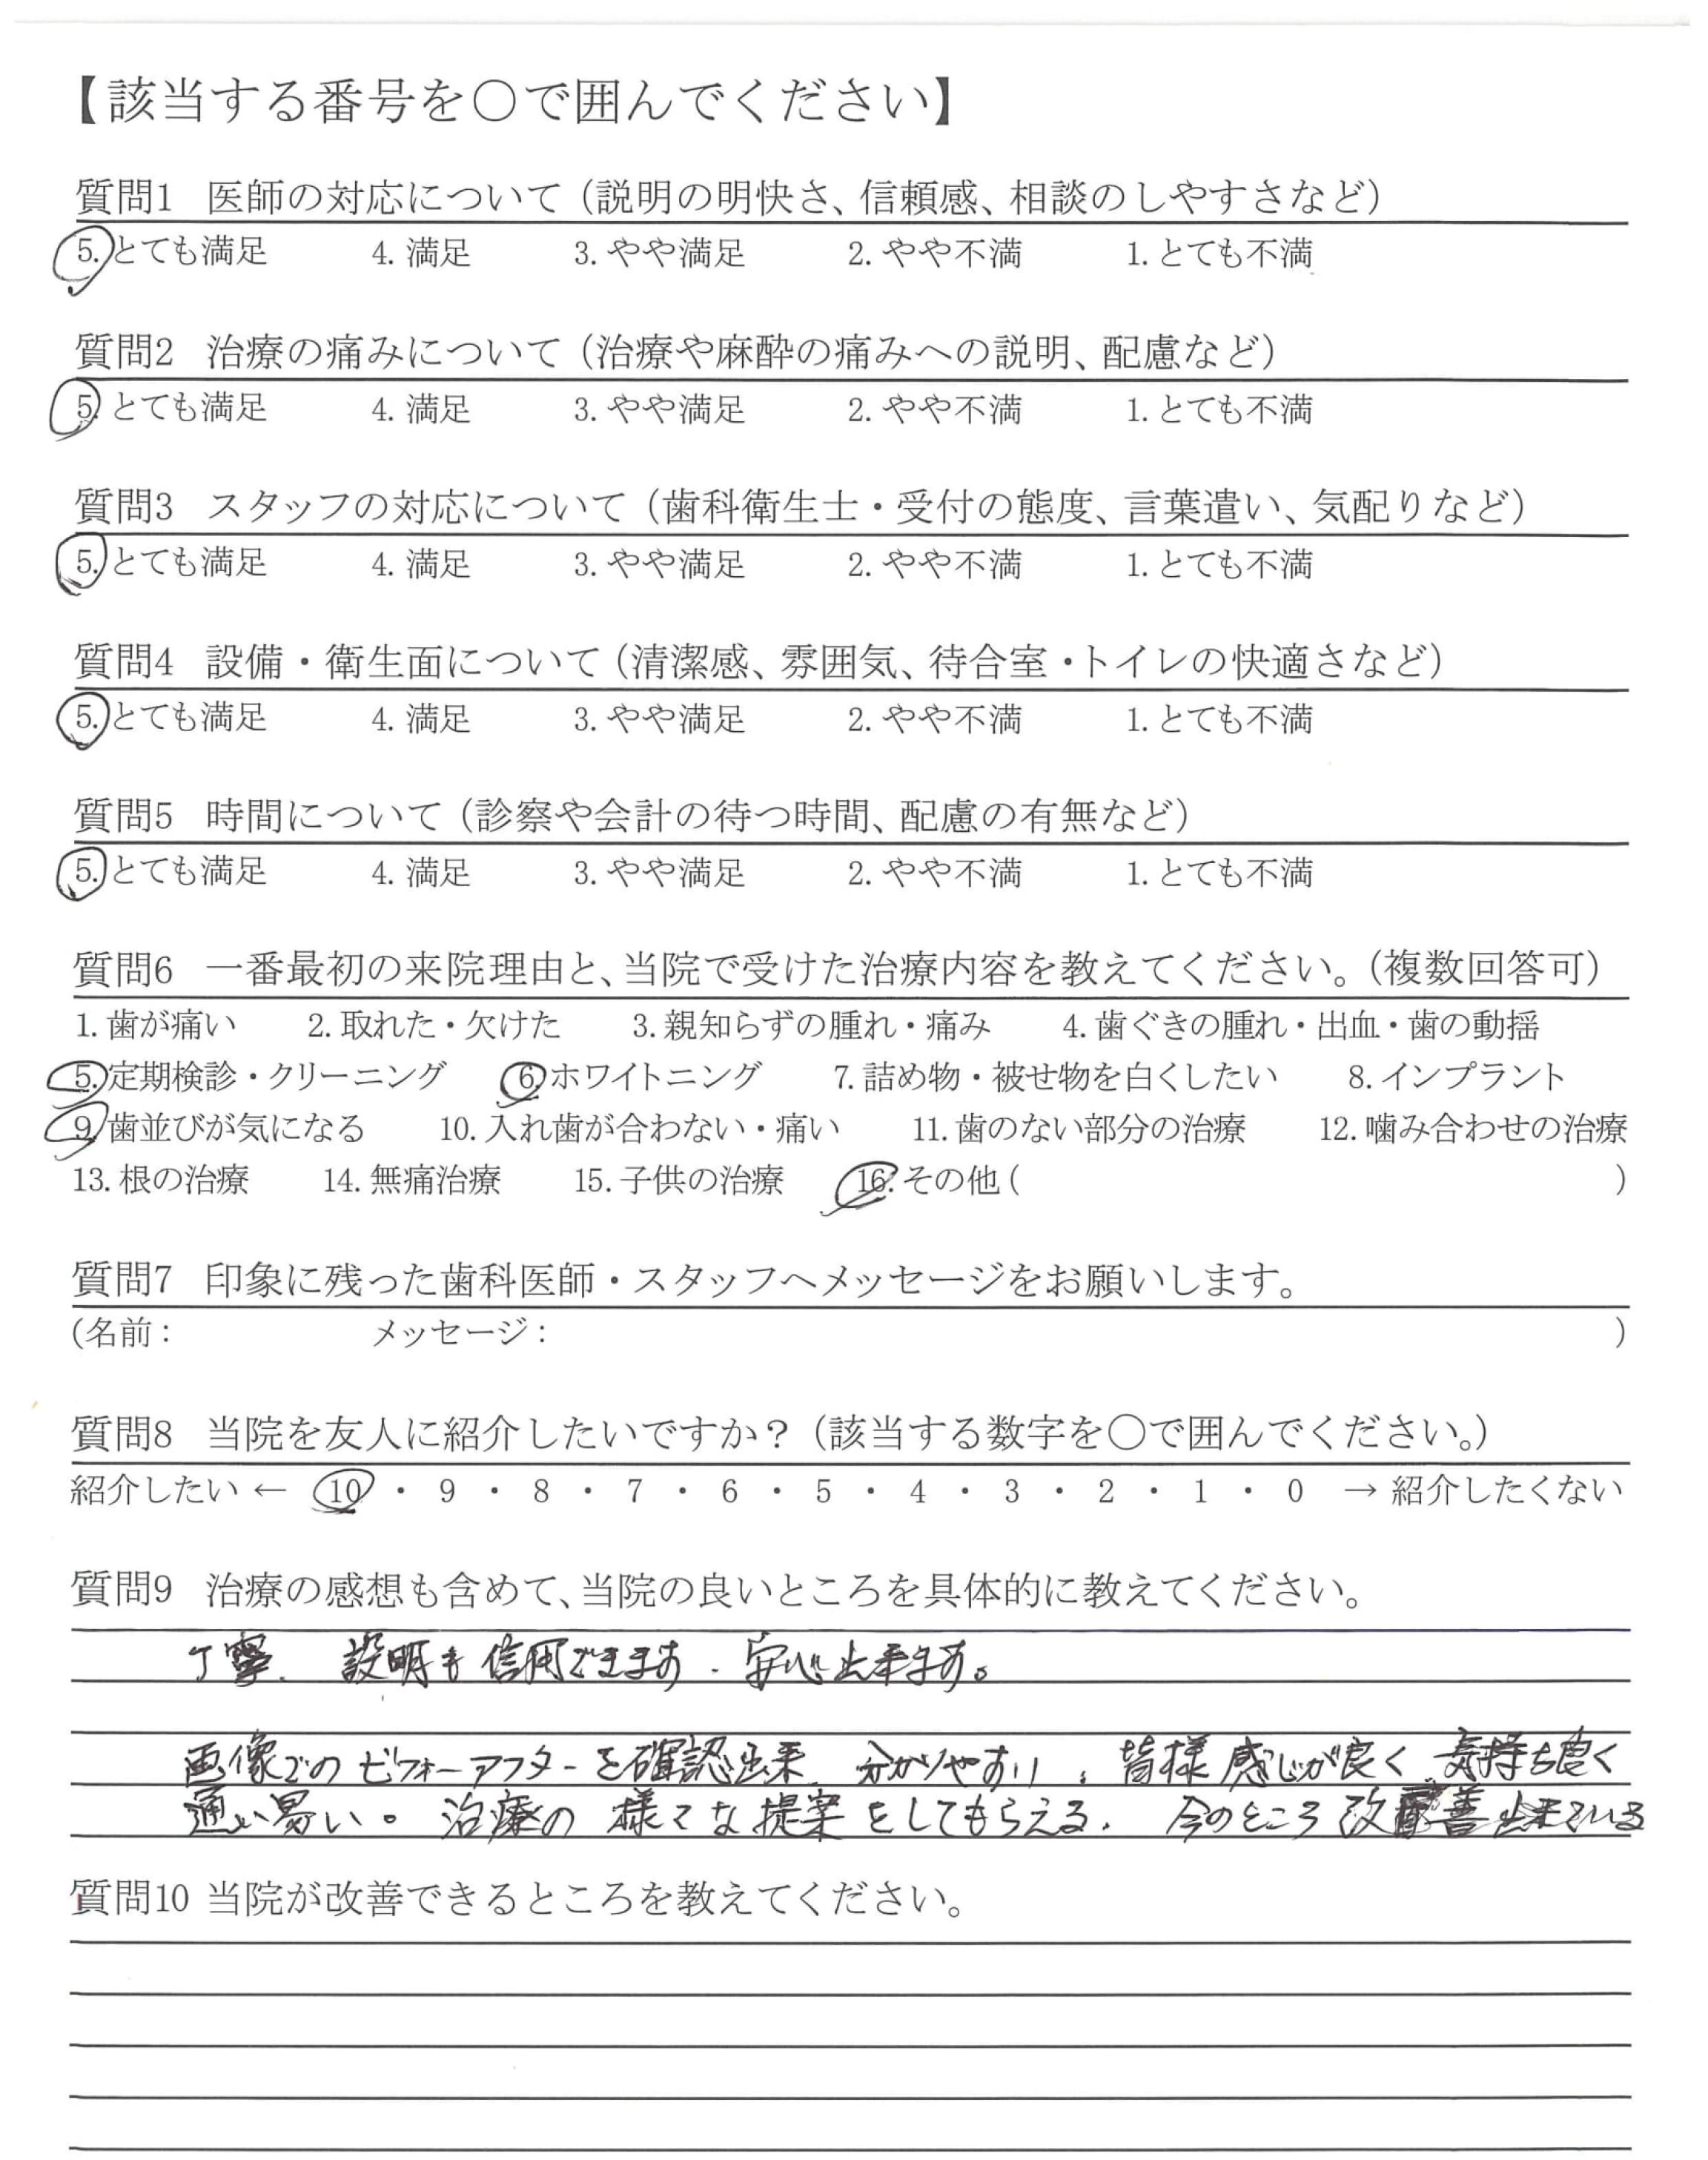 【該当する番号を○で囲んでください】
質問1 医師の対応について（説明の明快さ、信頼感、相談のしやすさなど）
5. とても満足 4. 満足 3. やや満足 2. やや不満 1. とても不満
質問2 治療の痛みについて（治療や麻酔の痛みへの説明、配慮など）
5. とても満足 4. 満足 3. やや満足 2. やや不満 1. とても不満
質問3 スタッフの対応について（歯科衛生士・受付の態度、言葉遣い、気配りなど）
5. とても満足 4. 満足 3. やや満足 2. やや不満 1. とても不満
質問4 設備・衛生面について（清潔感、雰囲気、待合室・トイレの快適さなど）
5. とても満足 4. 満足 3. やや満足 2. やや不満 1. とても不満
質問5 時間について（診察や会計の待つ時間、配慮の有無など）
5. とても満足 4. 満足 3. やや満足 2. やや不満 1. とても不満
質問6 一番最初の来院理由と、当院で受けた治療内容を教えてください。（複数回答可）
1. 歯が痛い 2. 取れた・欠けた 3. 親知らずの腫れ・痛み 4. 歯ぐきの腫れ・出血・歯の動揺
5. 定期検診・クリーニング 6. ホワイトニング 7. 詰め物・被せ物を白くしたい 8. インプラント
9. 歯並びが気になる 10. 入れ歯が合わない・痛い 11. 歯のない部分の治療 12. 噛み合わせの治療
13. 根の治療 14. 無痛治療 15. 子供の治療 16. その他（ ）
質問7 印象に残った歯科医師・スタッフへメッセージをお願いします。
（名前： メッセージ： ）
質問8 当院を友人に紹介したいですか？（該当する数字を○で囲んでください。）
紹介したい ← 10 ・ 9 ・ 8 ・ 7 ・ 6 ・ 5 ・ 4 ・ 3 ・ 2 ・ 1 ・ 0 → 紹介したくない
質問9 治療の感想も含めて、当院の良いところを具体的に教えてください。
丁寧、説明も信用できます、安心出来ます。
画像でのビフォーアフターを確認出来、分かりやすい、皆様感じが良く、気持ち良く
通い易い。治療の様々な提案をしてもらえる、今のところ改善出来ている
質問10 当院が改善できるところを教えてください。